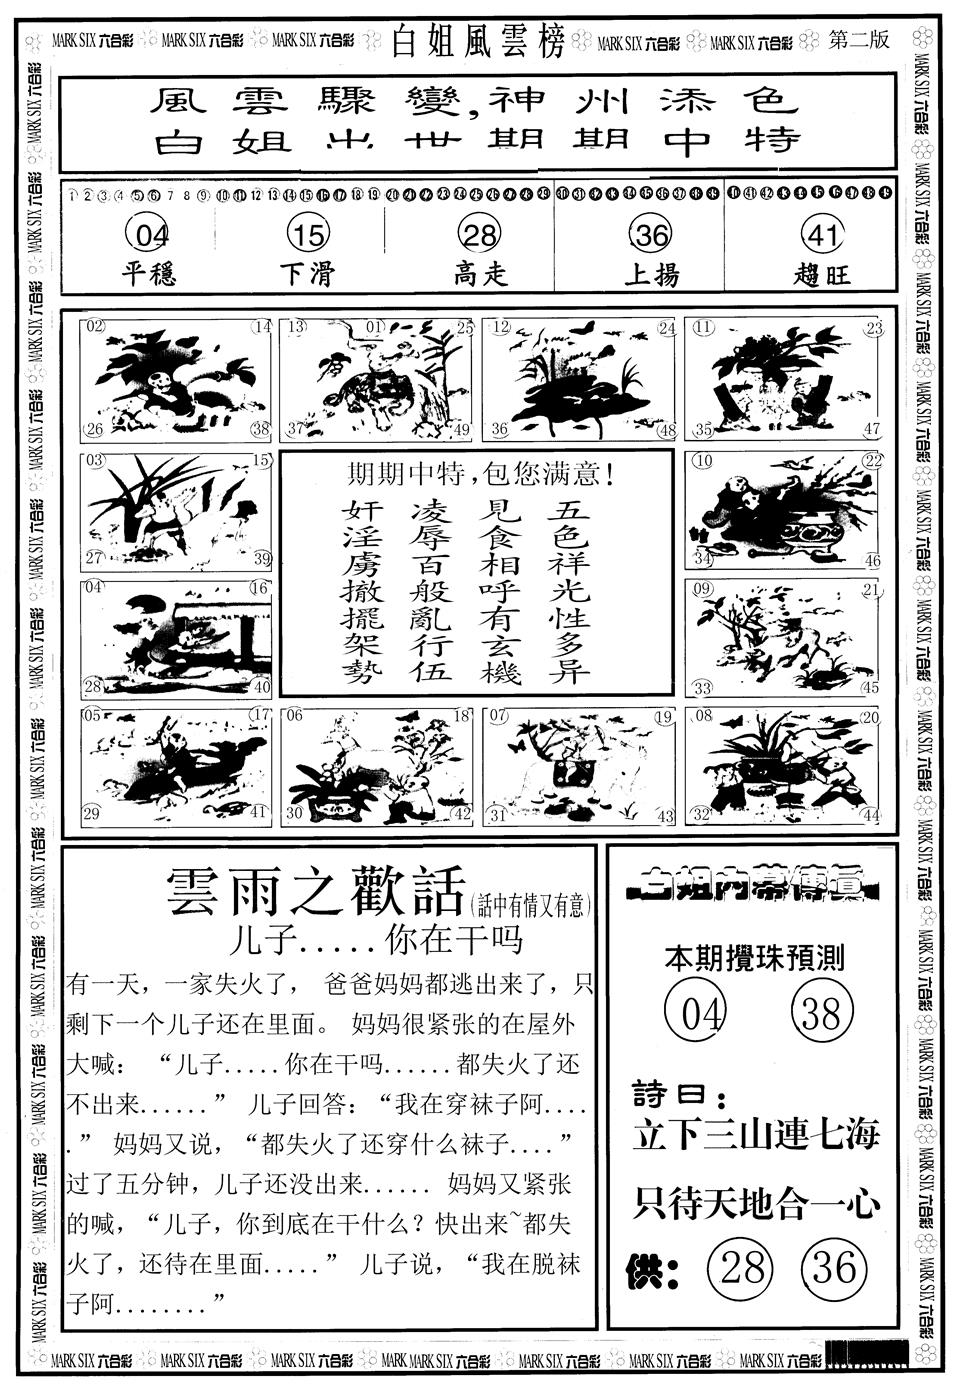 MARK SIX 六合彩 MARK SIX 六合彩 MARK SIX 六合彩 白姐風雲榜 MARK SIX 六合彩 MARK SIX 六合彩 第二版
風雲驟變,神州添色
白姐出世期期中特
1 2 3 4 5 6 7 8 9 10 11 12 13 14 15 16 17 18 19 20 21 22 23 24 25 26 27 28 29 30 31 32 33 34 35 36 37 38 39 40 41 42 43 44 45 46 47 48 49
04 15 28 36 41
平穩 下滑 高走 上揚 趨旺
02 14 13 01 25 12 24 11 23
26 38 37 49 36 48 35 47
03 15
27 39
04 16
28 40
期期中特,包您满意!
五色祥光性多异
見食相呼有玄機
凌辱百般亂行伍
奸淫虜撤擺架勢
10 22
34 46
09 21
33 45
05 17 06 18 07 19 08 20
29 41 30 42 31 43 32 44
雲雨之歡話(話中有情又有意)
儿子.....你在干吗
有一天，一家失火了， 爸爸妈妈都逃出来了，只
剩下一个儿子还在里面。 妈妈很紧张的在屋外
大喊： “儿子.....你在干吗......都失火了还
不出来......” 儿子回答：“我在穿袜子阿....
.” 妈妈又说，“都失火了还穿什么袜子....”
过了五分钟，儿子还没出来...... 妈妈又紧张
的喊，“儿子，你到底在干什么？快出来~都失
火了，还待在里面.....” 儿子说，“我在脱袜
子阿........”
白姐内幕傳真
本期攪珠預測
04 38
詩曰:
立下三山連七海
只待天地合一心
供: 28 36
MARK SIX 六合彩 MARK SIX 六合彩 MARK SIX 六合彩 MARK MARK SIX 六合彩 MARK SIX 六合彩 MARK SIX 六合彩 MARK SIX 六合彩